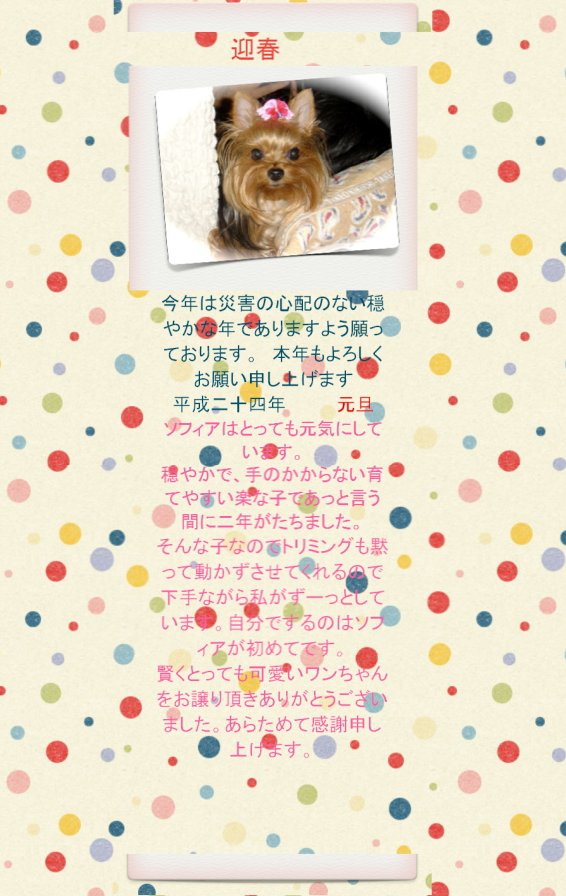 迎春
今年は災害の心配のない穏
やかな年でありますよう願っ
ております。 本年もよろしく
お願い申し上げます
平成二十四年 元旦
ソフィアはとっても元気にして
います。
穏やかで、手のかからない育
てやすい楽な子であっと言う
間に二年がたちました。
そんな子なのでトリミングも黙
って動かずさせてくれるので
下手ながら私がずーっとして
います。自分でするのはソフ
ィアが初めてです。
賢くとっても可愛いワンちゃん
をお譲り頂きありがとうござい
ました。あらためて感謝申し
上げます。